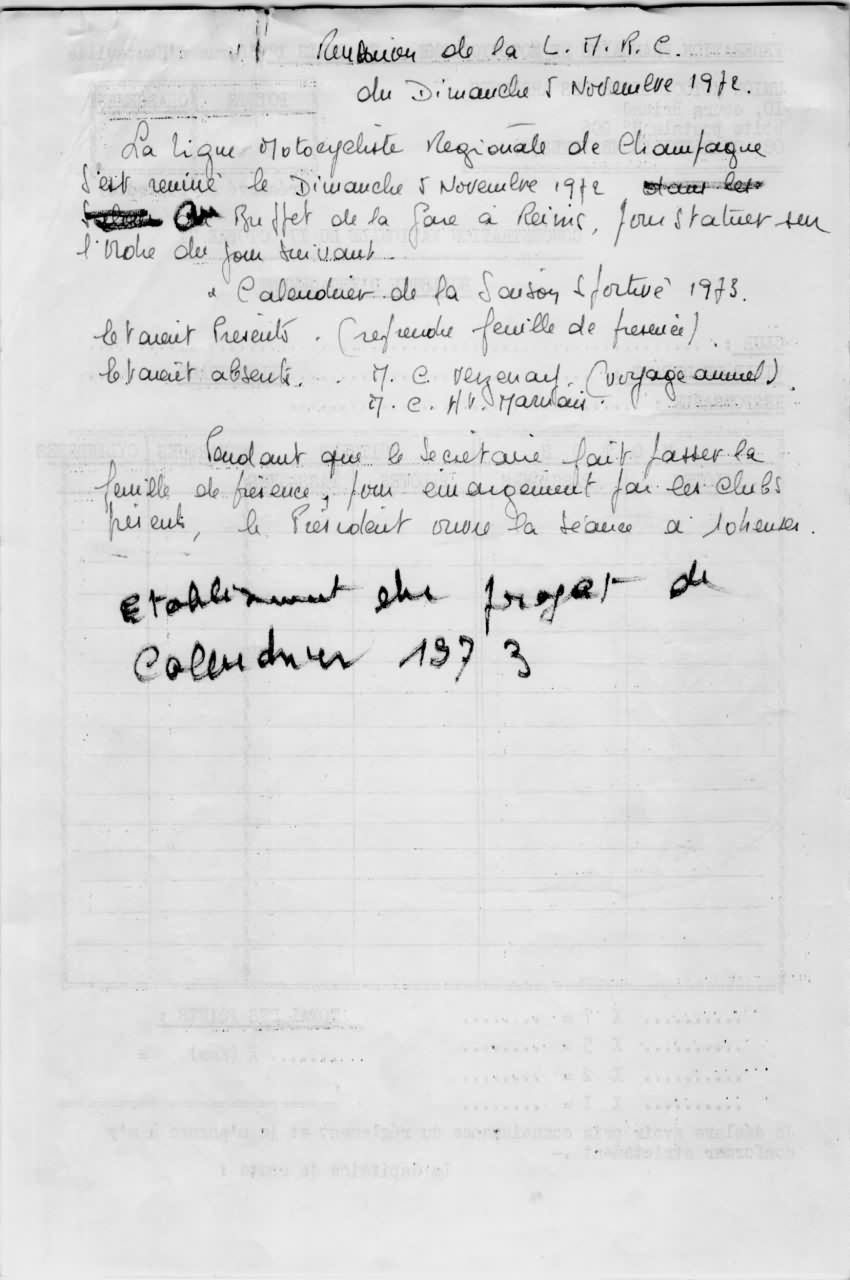 Reunion de la L. M. R. C.
du Dimanche 5 Novembre 1972.
La Ligue Motocycliste Regionale de Champagne
s'est reunie le Dimanche 5 Novembre 1972 dans les
Au Buffet de la Gare à Reims, pour statuer sur
l'ordre du jour suivant.
" Calendrier de la Saison Sportive 1973.
Etaient Présents. (reprendre feuille de presence).
Etaient absents. . M. C. Verzenay. (voyage annuel).
M. C. Ht. Marnais.
Pendant que le Secrétaire fait passer la
feuille de présence, pour émargement par les clubs
présents, le Président ouvre la séance à 10 heures.
Etablissement du projet de
Calendrier 1973